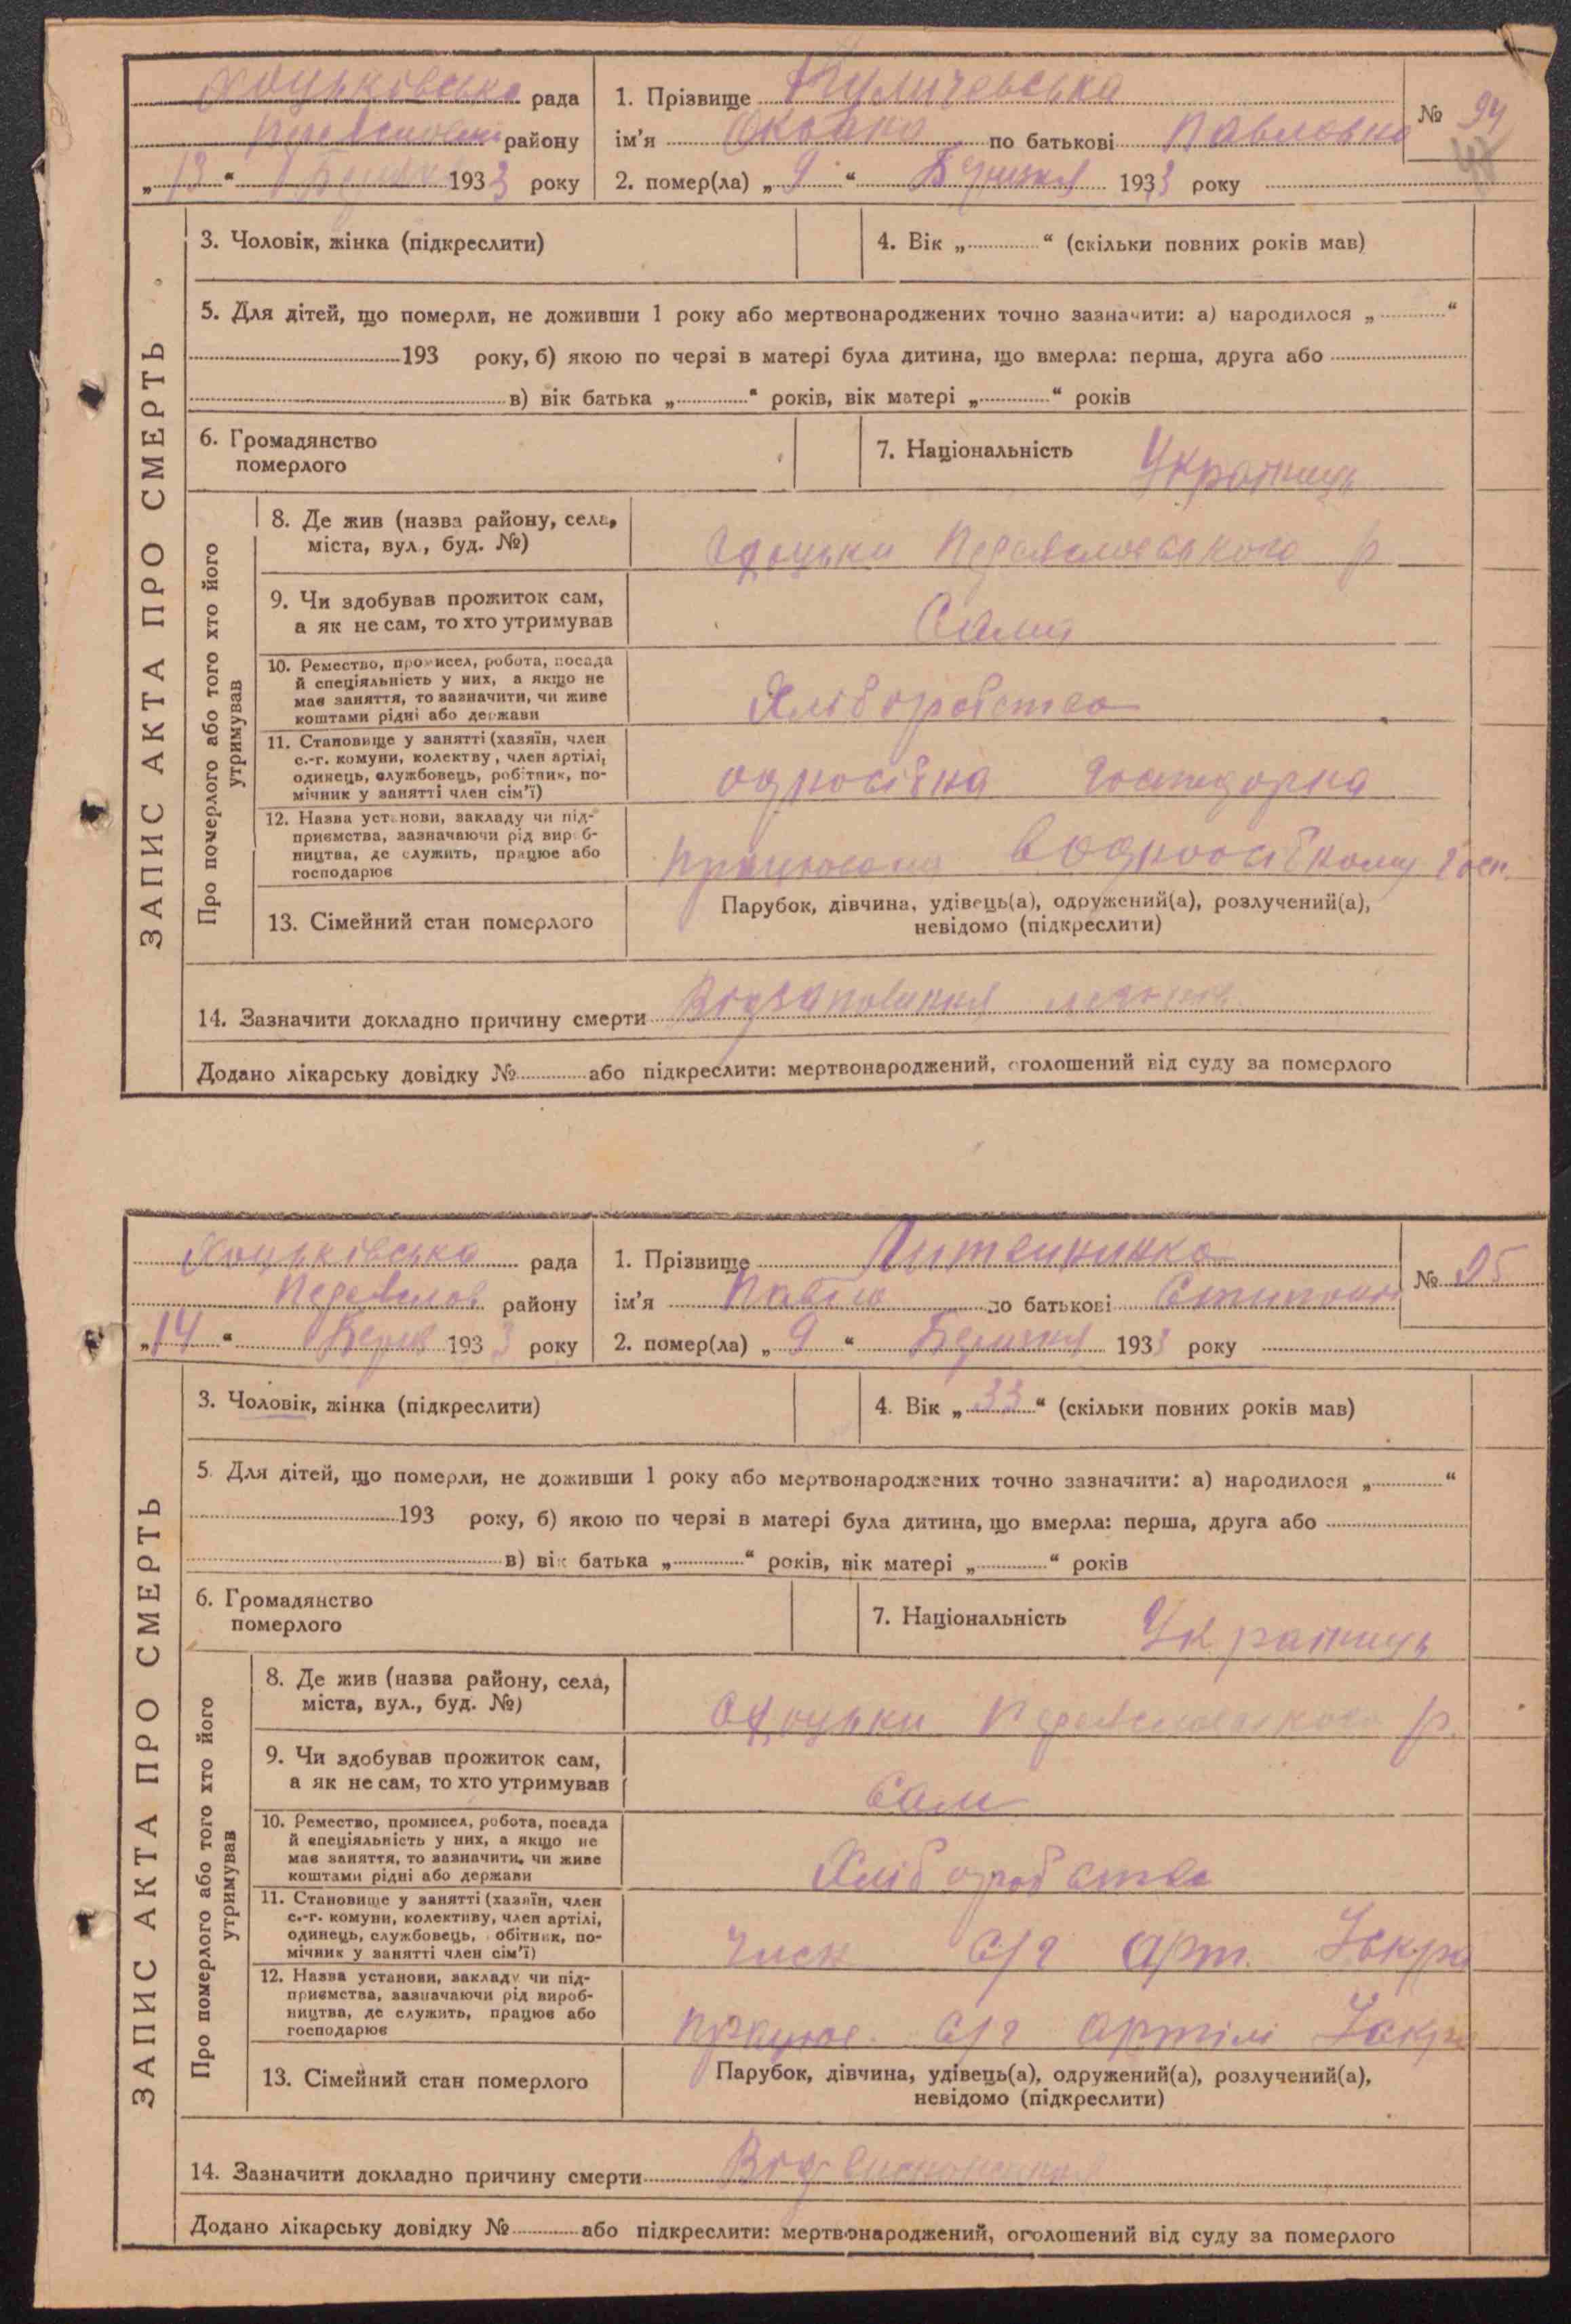 Хоцьківська рада
району
„13“ 1933 року
1. Прізвище
ім'я по батькові Павловна
2. помер(ла) „9“ 1933 року
№ 94
ЗАПИС АКТА ПРО СМЕРТЬ
3. Чоловік, жінка (підкреслити)
4. Вік „ “ (скільки повних років мав)
5. Для дітей, що померли, не доживши 1 року або мертвонароджених точно зазначити: а) народилося „ “
193 року, б) якою по черзі в матері була дитина, що вмерла: перша, друга або
в) вік батька „ “ років, вік матері „ “ років
6. Громадянство
померлого
7. Національність Українець
Про померлого або того хто його
утримував
8. Де жив (назва району, села,
міста, вул., буд. №)
Хоцьки Переяславського р
9. Чи здобував прожиток сам,
а як не сам, то хто утримував
Сама
10. Ремество, промисел, робота, посада
й спеціяльність у них, а якщо не
має заняття, то зазначити, чи живе
коштами рідні або держави
Хліборобство
11. Становище у занятті (хазяїн, член
с.-г. комуни, колектву, член артілі,
одинець, службовець, робітник, по-
мічник у занятті член сім'ї)
12. Назва установи, закладу чи під-
приємства, зазначаючи рід вироб-
ництва, де служить, працює або
господарює
13. Сімейний стан померлого
Парубок, дівчина, удівець(а), одружений(а), розлучений(а),
невідомо (підкреслити)
14. Зазначити докладно причину смерти
Додано лікарську довідку № або підкреслити: мертвонароджений, оголошений від суду за померлого
Хоцьківська рада
Переяслов району
„14“ 1933 року
1. Прізвище
ім'я Павло по батькові
2. помер(ла) „9“ 1933 року
№ 95
ЗАПИС АКТА ПРО СМЕРТЬ
3. Чоловік, жінка (підкреслити)
4. Вік „33“ (скільки повних років мав)
5. Для дітей, що померли, не доживши 1 року або мертвонароджених точно зазначити: а) народилося „ “
193 року, б) якою по черзі в матері була дитина, що вмерла: перша, друга або
в) вік батька „ “ років, вік матері „ “ років
6. Громадянство
померлого
7. Національність Українець
Про померлого або того хто його
утримував
8. Де жив (назва району, села,
міста, вул., буд. №)
Хоцьки Переяславського р.
9. Чи здобував прожиток сам,
а як не сам, то хто утримував
Сам
10. Ремество, промисел, робота, посада
й спеціяльність у них, а якщо не
має заняття, то зазначити, чи живе
коштами рідні або держави
Хліборобство
11. Становище у занятті (хазяїн, член
с.-г. комуни, колективу, член артілі,
одинець, службовець, обітник, по-
мічник у занятті член сім'ї)
член с/г арт. Іскра
12. Назва установи, закладу чи під-
приємства, зазначаючи рід вироб-
ництва, де служить, працює або
господарює
працює с/г артілі Іскра
13. Сімейний стан померлого
Парубок, дівчина, удівець(а), одружений(а), розлучений(а),
невідомо (підкреслити)
14. Зазначити докладно причину смерти Від
Додано лікарську довідку № або підкреслити: мертвонароджений, оголошений від суду за померлого